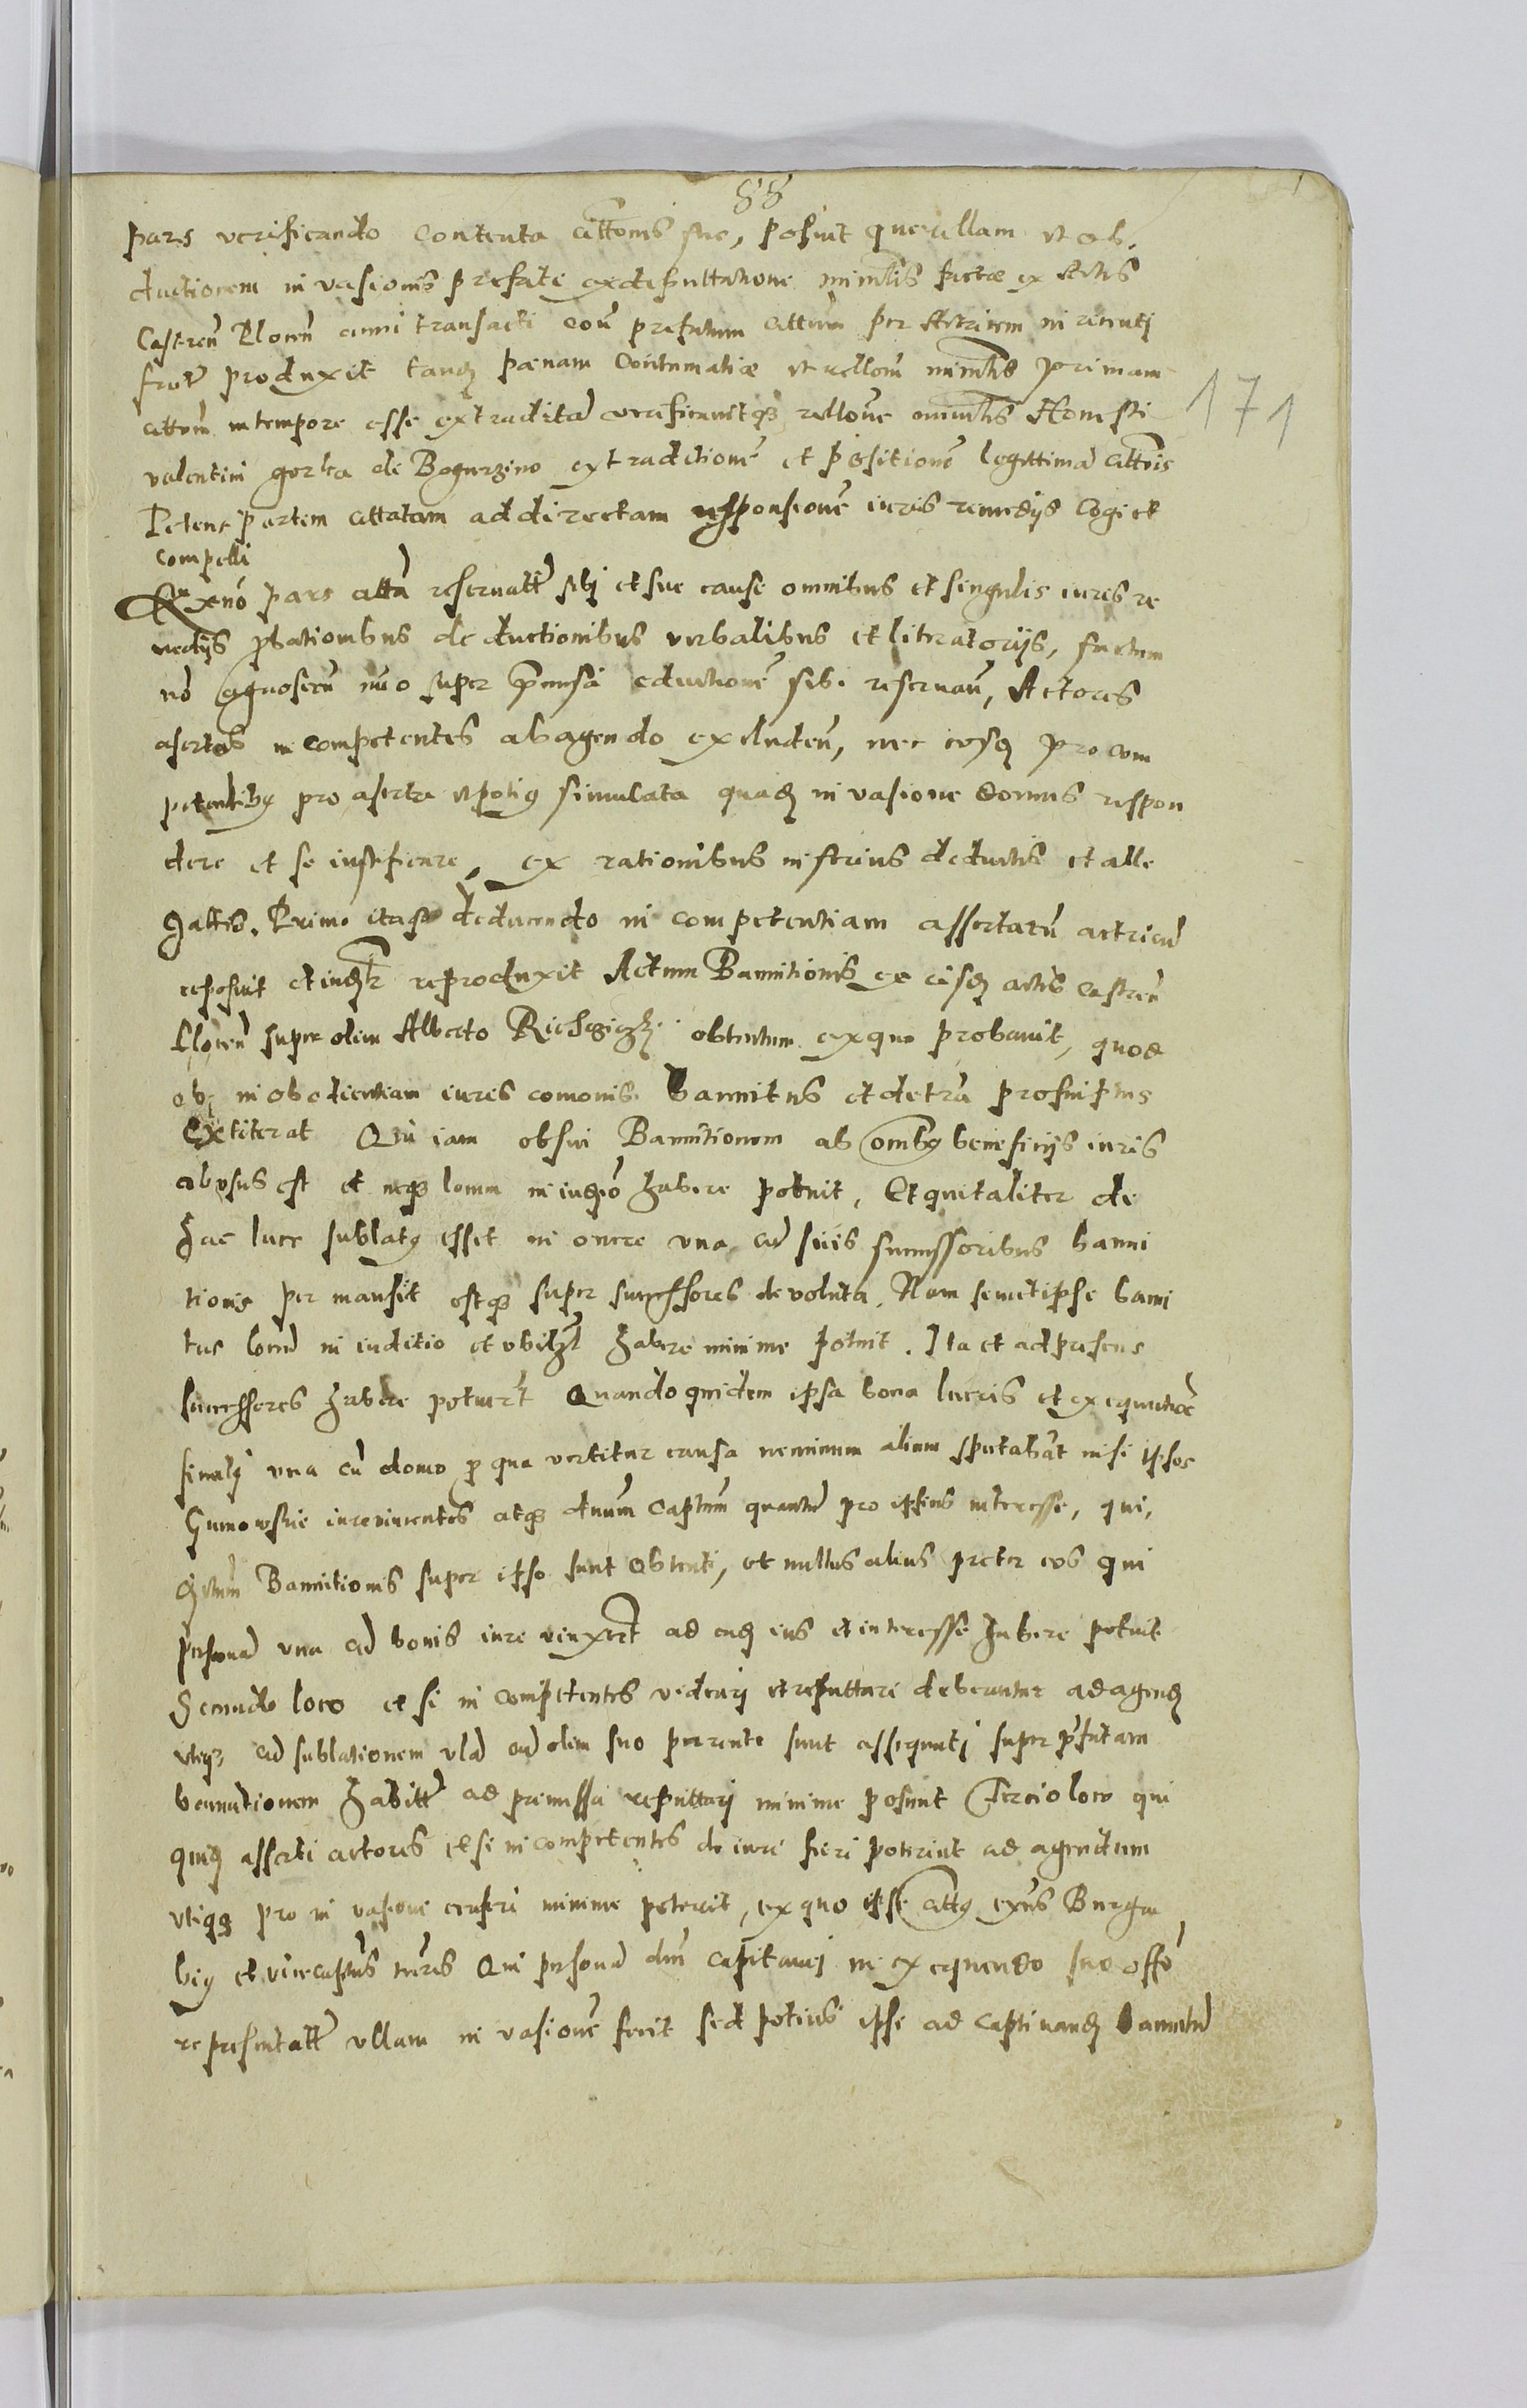 88
pars verificando contenta cittonis sue, posuit querellam et ob,
ductionem in vasionis prefate ex deputtatione minrlis factæ ex Actis
Castren Plocen anni transacti
produxit tanq pœnam Contumatiæ et rellonem minrlis primam
cittonem in tempore esse extraditam verificavitqs rellone minrlis Honesti
171
valentini gorka de Bogurzino extraditionē et positionē legittimā cittonis
Petens partem cittatam ad directam responsionē iuris remedijs cogi et
compelli
Ex aduerso pars citta reservattr sibi et sue cause omnibus et singulis iuris re
medijs probationibus deductionibus verbalibus et literatorijs, factum
nō agnoscen imo super premissa eductionē sibi reservan, Actores
asertos incompetentes ab agendo excluden, nec eosq pro com
petentibus pro aserta et potius simulata quadā in vasione domus respon
dere et se iustificare, ex rationibus inferius deductis et alle
gattis. Primo itaqs deducendo in competentiam assertarū actricū
reposuit et reproduxit Actum Bannitionis ex eisq actis castren
Plocen super olim Alberto obtentum ex quo probavit, quod
ob inobedientiam iuris comonis bannitus et de terra proscriptus
extiterat Qui iam ob sui Bannitionem ab omnibus beneficijs iuris
abusus est et neqs locum in iudicio habere potuit, Et qui taliter de
hac luce sublatus esset in onere una cū suis successoribus banni
tionis per mansit estqs super successores devoluta, Nam sicut ipse banni
tus locum in iuditio et ubilibet habere minime potuit. Ita et ad presens
successores habere potuert Quandoquidem ipsa bona lucris et exequutioē
finali una cū domo p qua vertitur causa neminum alium spectabāt nisi ipsos
Gumowskie iure vincentes atqs dnum Captum quantū pro ipsius interesse, qui,
Actum Bannitionis super ipso sunt obtenti, et nullus alius preter eos qui
personā una cū bonis iure vinxert ad eadē ius et interesse habere potuit
Secundo loco et si in competentes videri et reputtari deberentur ad agendū
utiqs cū sublationem ullā cū olim suo parente sunt assequuti super prefatam
bannitionem habittr ad premissa reputtari minime posunt Tercio loco qui
quidē asserti actores et si in competentes de iure fieri potirint ad agendum
utiqs pro in vasione censeri minime poterit, ex quo ipse cittus exns Burgra
bius et vicecaptus terris Qui personā dni capitanei in exequendo suo offo
representattr ullam in vasionē fecit sed potius ipse ad captivandū bannitū